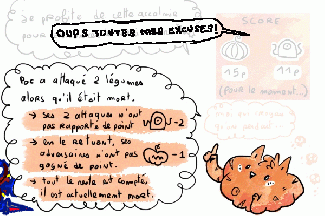 Je profite de cette accalmie
pour
OUPS TOUTES MES EXCUSES!
SCORE
15p 11p
(pour le moment...)
Poc a attaqué 2 légumes
alors qu'il était mort.
→ Ses 2 attaques n'ont
pas rapporté de point -2
→ en le retuant, ses
adversaires n'ont pas
gagné de point. -1
→ tout le reste est compté,
il est actuellement mort.